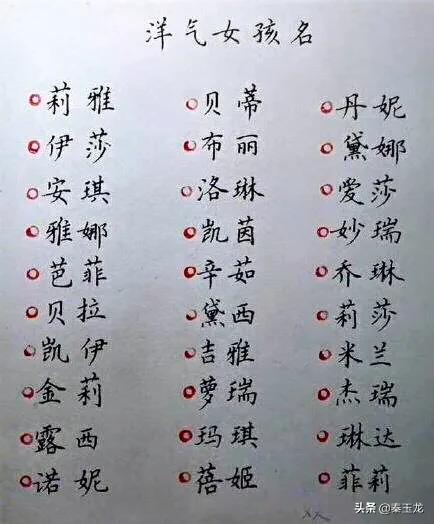 洋气女孩名
莉雅 贝蒂 丹妮
伊莎 布丽 黛娜
安琪 洛琳 爱莎
雅娜 凯茵 妙瑞
芭菲 辛茹 乔琳
贝拉 黛西 莉莎
凯伊 吉雅 米兰
金莉 萝瑞 杰瑞
露西 玛琪 琳达
诺妮 蓓姬 菲莉
头条@秦玉龙